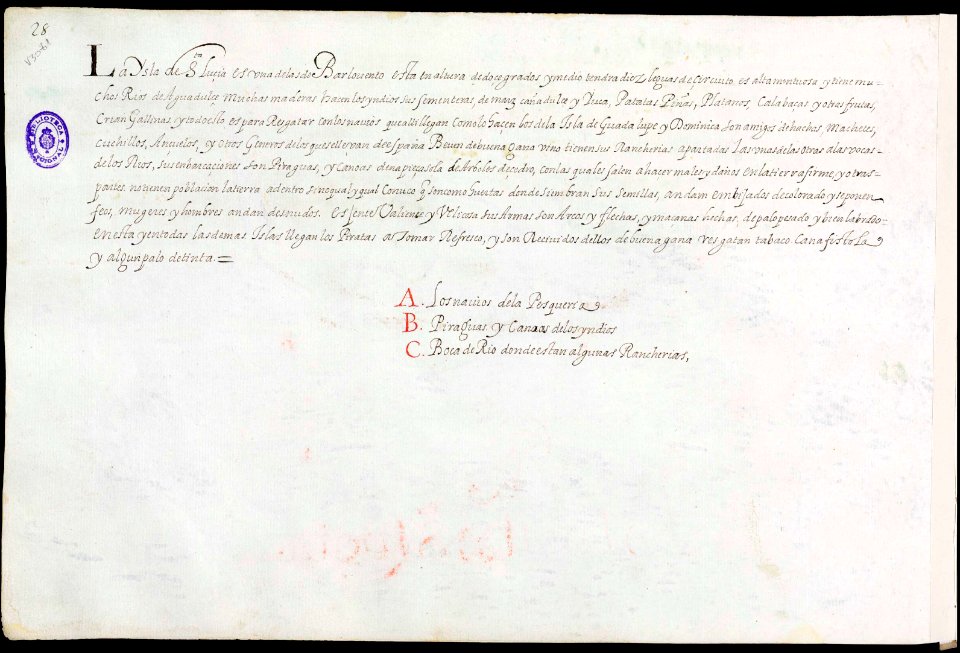 28
La Ysla de S.ta Lusia es vna de las do Barlovento esta en altura de doce grados y medio tendra diez leguas de circuito es alta montuosa y tiene mu-
chos Rios de Agua dulce muchas maderas hacen los yndios sus sementeras, de maiz caña dulce y Yuca, Patatas Piñas, Platanos, Calabaças y otras frutas,
Crian Gallinas y todo esto es para Resgatar con los navios que alli llegan como lo hacen los de la Isla de Guadalupe y Dominica son amigos de hachas, Machetes,
Cuchillos, Ançuelos, y otros Generos de los que se llevan de españa Beven de buena gana vino tienen sus Rancherias apartadas las vnas de las otras a las vocas
de los Rios, sus enbarcaciones son Piraguas, y Canoas de na pieça sola de Arboles de cedro, con las quales salen a hacer males y daños en la tierra firme y otras
partes no tienen poblacion la tierra adentro sino qual y qual Conuco q son como huertas donde siembran sus semillas, andam embijados de colorado y se ponen
feos, mugeres y hombres andan desnudos. es jente Valiente y Velicosa sus Armas son Arcos y flechas, y macanas hechas de palo pesado y bien labrado
en esta y en todas las demas Islas llegan los Piratas a tomar Refresco, y son Recividos dellos de buena gana resgatan tabaco Cañafistola
y algun palo de tinta
A. Los navios de la Pesqueria
B. Piraguas y Canoas de los yndios
C. Boca de Rio donde estan algunas Rancherias,
BIBLIOTECA NACIONAL